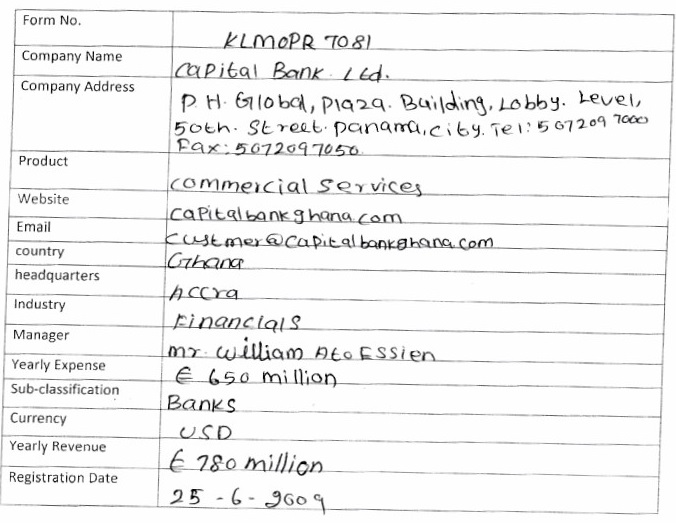 Form No.
KLMOPR 7081
Company Name
Capital Bank Ltd.
Company Address
P.H. Global, Plaza. Building, Lobby. Level,
50th. Street. Panama, City. Tel: 507209 7000
Fax: 5072097050
Product
commercial services
Website
capitalbankghana.com
Email
custmer@capitalbankghana.com
country
Ghana
headquarters
Accra
Industry
Financials
Manager
mr. William Ato Essien
Yearly Expense
€ 650 million
Sub-classification
Banks
Currency
USD
Yearly Revenue
€ 780 million
Registration Date
25 - 6 - 2009